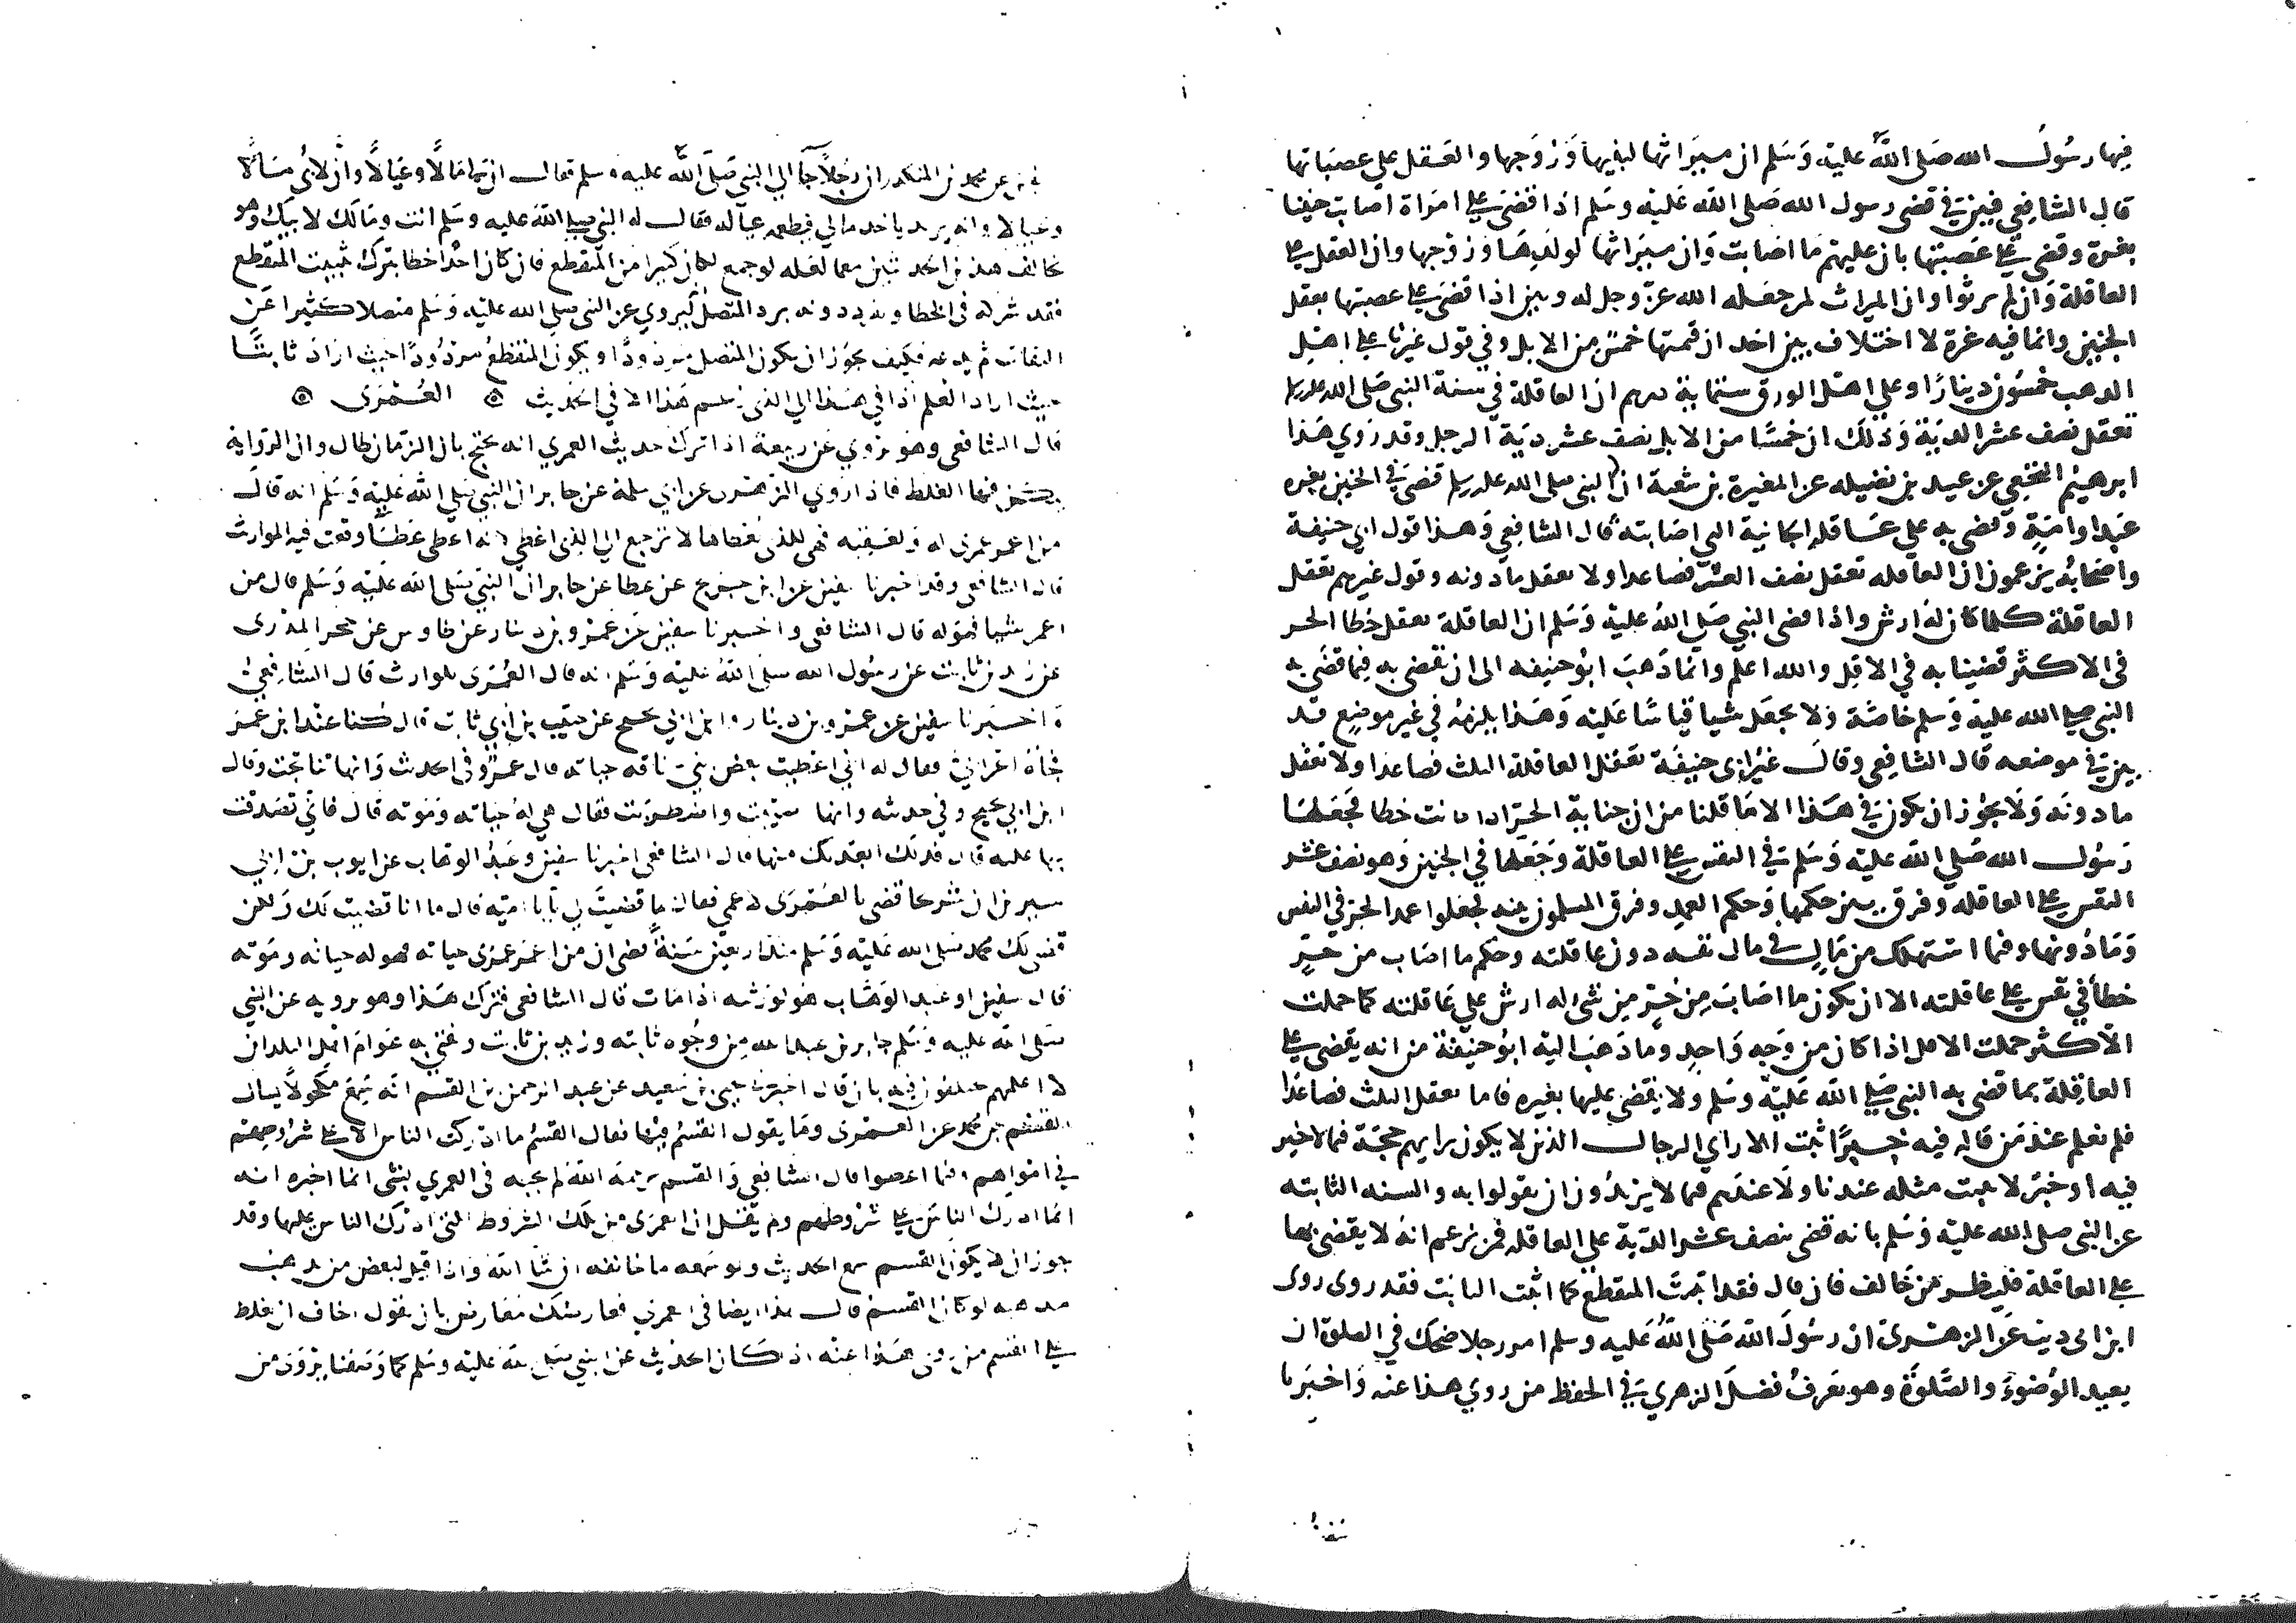 فيها رسول الله صلى الله عليه وسلم ان ميراثها لبنيها وزوجها والعقل علي عصباتها
قال الشافعي فبين في قضى رسول الله صلى الله عليه وسلم اذا قضى على امراة اصابت جنينا
بغرة وقضى على عصبتها بان عليهم ما اصابت وان ميراثها لولدها وزوجها وان العقل على
العاقلة وان لم يرثوا وان الميراث لمن جعله الله عز وجل له وبين اذا قضى على عصبتها بعقل
الجنين وانما فيه غرة لا اختلاف بين احد ان قيمتها خمس من الابل وفي قول غيرنا على اهل
الذهب خمسون دينارا وعلي اهل الورق ستماية درهم ان العاقلة في سنة النبي صلى الله عليه وسلم
تعقل نصف عشر الدية وذلك ان خمسا من الابل نصف عشر دية الرجل وقد روي هذا
ابرهيم النخعي عن عبيد بن نضيله عن المغيرة بن شعبة ان النبي صلى الله عليه وسلم قضى في الجنين بغره
عبد او امة وقضى به علي عاقلة الجانية التي اصابته قال الشافعي وهذا قول ابي حنيفة
واصحابه يزعمون ان العاقله تعقل نصف العشر فصاعدا ولا تعقل ما دونه وقول غيرهم تعقل
العاقلة كلما كان له ارش واذا قضى النبي صلى الله عليه وسلم ان العاقلة تعقل خطا الحر
في الاكثر قضينا به في الاقل والله اعلم وانما ذهب ابو حنيفه الى ان نقضي به فيما قضى به
النبي صلى الله عليه وسلم خاصة ولا يجعل شيا قياسا عليه وهذا يلزمه في غير موضع قد
بين في موضعه قال الشافعي وقال غير ابي حنيفة تعقل العاقلة الثلث فصاعدا ولا تعقل
ما دونه ولا يجوز ان يكون في هذا الا ما قلنا من ان جناية الحر اذا كانت خطا فجعلها
رسول الله صلى الله عليه وسلم في النفس على العاقلة وجعلها في الجنين وهو نصف عشر
النفس على العاقله وفرق بين حكمها وحكم العمد وفرق المسلمون بينه فجعلوا عمد الحر في النفس
وما دونها وفيما استهلك من مال في مال نفسه دون عاقلته وحكم ما اصاب من حر
خطأ في نفس على عاقلته الا ان يكون ما اصاب من حر من شئ له ارش علي عاقلته كما حملت
الاكثر حملت الاقل اذا كان من وجه واحد وما ذهب اليه ابو حنيفة من انه يقضى على
العاقلة بما قضى به النبي صلى الله عليه وسلم ولا يقضى عليها بغيره فاما تعقل الثلث فصاعدا
فلم نعلم عند من قاله فيه خبرا ثبت الا راي الرجال الذين لا يكون رايهم حجة فيما لا خبر
فيه او خبر لا يثبت مثله عندنا ولا عندهم فما لا يزيدون ان يقولوا به والسنه الثابته
عن النبي صلى الله عليه وسلم بانه قضى بنصف عشر الدية علي العاقله فمن زعم انه لا يقضى بها
على العاقلة فلينظر من خالف فان قال فقد اثبت المنقطع كما اثبت الثابت فقد روى روى
ابن ابي ديب عن الزهري ان رسول الله صلى الله عليه وسلم امر رجلا ضحك في الصلوة ان
يعيد الوضوء والصلوة وهو يعرف فضل الزهري في الحفظ من روي هذا عنه واخبرنا
عن محمد بن المنكدر ان رجلا جا الي النبي صلى الله عليه وسلم فقال ان لي مالا وعيالا وان لابي مالا
وعيالا وانه يريد ياخذ مالي فيطعمه عياله فقال له النبي صلى الله عليه وسلم انت ومالك لابيك وهو
يخالف هذين الحديثين معا لعله لو جمع لكان كبيرا من المنقطع فان كان احد اخطا بترك تثبيت المنقطع
فقد شركه في الخطا وتفرد دونه برد المتصل يروي عن النبي صلى الله عليه وسلم متصلا كثيرا عن
الثقات ثم يدعه فكيف يجوز ان يكون المتصل مردودا ويكون المنقطع مردودا حيث اراد ثابتا
حيث اراد العلم اذا في هذا الي الذي زعم هذا لا في الحديث ۞ العمرى ۞
قال الشافعي وهو يروي عن ربيعة اذا ترك حديث العمري انه يحتج بان الزمان طال وان الرواية
يمكن فيها الغلط فاذا روي الزهري عن ابي سلمة عن جابر ان النبي صلى الله عليه وسلم انه قال
من اعمر عمرى له ولعقبه فهي للذي يعطاها لا ترجع الي الذي اعطى لانه اعطى عطا وقعت فيه المواريث
قال الشافعي وقد اخبرنا سفين عن ابن جريج عن عطا عن جابر ان النبي صلى الله عليه وسلم قال من
اعمر شيا فهو له قال الشافعي واخبرنا سفين عن عمرو بن دينار عن طاوس عن حجر المدري
عن زيد بن ثابت عن رسول الله صلى الله عليه وسلم انه قال العمرى للوارث قال الشافعي
واخبرنا سفين عن عمرو بن دينار وابن ابي نجيح عن حبيب بن ابي ثابت قال كنا عند ابن عمر
فجاه اعرابي فقال له اني اعطيت بعض بني ناقه حياته قال عمرو في الحديث وانها تناتجت وقال
ابن ابي نجيح في حديثه وانها اضنت واضطربت فقال هي له حياته وموته قال فاني تصدقت
بها عليه قال فذلك ابعد لك منها قال الشافعي اخبرنا سفين وعبد الوهاب عن ايوب عن ابن
سيرين ان شريحا قضى بالعمرى لاعمي فقال بما قضيت لي يا با امية فقال ما انا قضيت لك ولكن
قضى لك محمد صلى الله عليه وسلم منذ اربعين سنة قضى ان من اعمر عمرى حياته فهو له حياته وموته
قال سفين او عبد الوهاب فهو لورثته اذا مات قال الشافعي فترك هذا وهو يرويه عن النبي
صلى الله عليه وسلم جابر بن عبد الله من وجوه ثابته وزيد بن ثابت ويفتي به عوام اهل البلدان
لا اعلمهم يختلفون فيه بان قال اخبرنا يحيى بن سعيد عن عبد الرحمن بن القسم انه سمع مكحولا يسال
القسم بن محمد عن العمرى وما يقول الناس فيها فقال القسم ما ادركت الناس الا على شروطهم
في اموالهم وفيما اعطوا قال الشافعي والقسم يرحمه الله لم يجبه في العمري بشى انما اخبره انه
انما ادرك الناس على شروطهم ولم يقل ان العمرى من تلك الشروط التي ادرك الناس عليها وقد
يجوز ان لا يكون القسم سمع الحديث ولو سمعه ما خالفه ان شا الله واذا قيل لبعض من يذهب
مذهبه لو كان القسم قال هذا ايضا في العمرى فعارضك معارض بان يقول اخاف ان غلط
على القسم من روى هذا عنه اذ كان الحديث عن النبي صلى الله عليه وسلم كما وصفنا يروى من